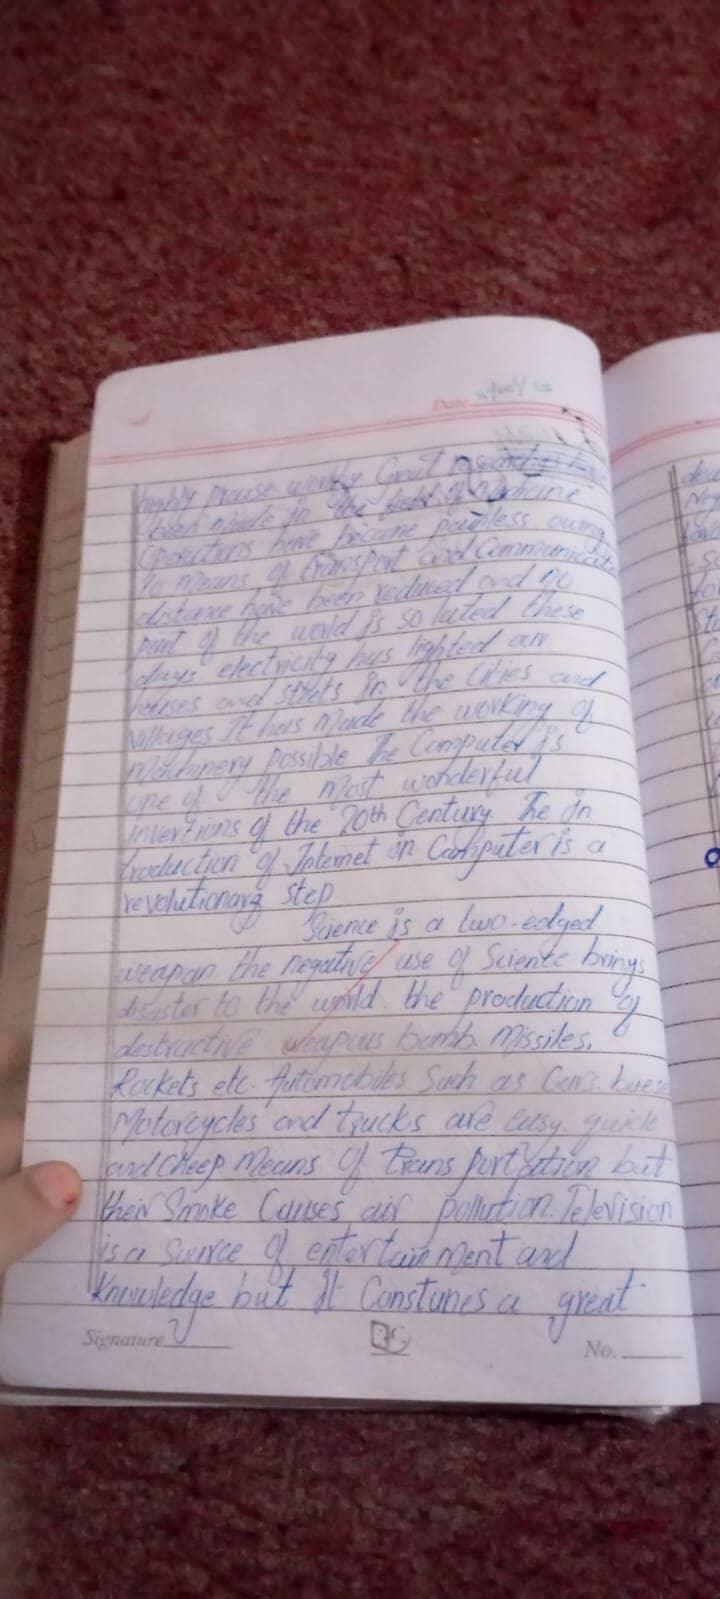 Date
highly prause worthy Great researches have
been made in the field of Medicine
Operations have became painless owing
to means of transport and Communicati
distance have been reduced and no
part of the world is so lated these
days electricity has lighted our
houses and streets in the Cities and
villages It has made the working of
Machinery possible The Computer is
one of the most wonderful
inventions of the 20th Century. The in
troduction of Internet on Computer is a
revolutionary step
Science is a two-edged
weapan. the negative use of Science brings
disaster to the world. the production of
destructive weapous bomb Missiles.
Rockets etc. Automobiles Such as Cars.
Motorcycles and trucks are easy. quick
and cheep Means of Trans portation but
their Smoke Causes air pollution. Television
is a Source of entertain ment and
Knowledge but it Constunes a great
Signature
No.